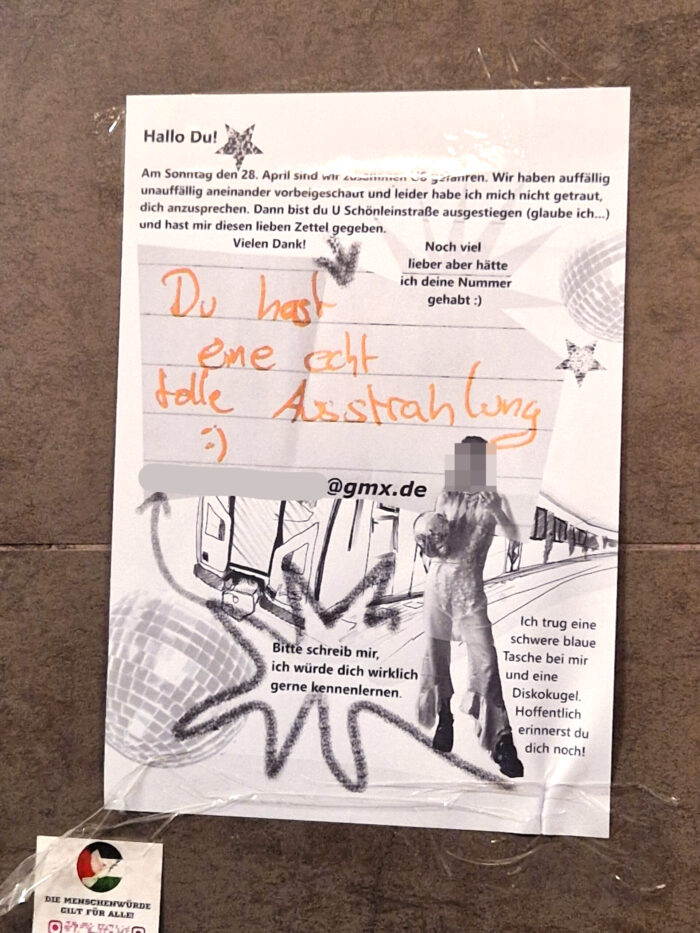 Hallo Du!
Am Sonntag den 28. April sind wir zusammen U8 gefahren. Wir haben auffällig
unauffällig aneinander vorbeigeschaut und leider habe ich mich nicht getraut,
dich anzusprechen. Dann bist du U Schönleinstraße ausgestiegen (glaube ich...)
und hast mir diesen lieben Zettel gegeben.
Vielen Dank!
Noch viel
lieber aber hätte
ich deine Nummer
gehabt :)
Du hast
eine echt
tolle Ausstrahlung
:)
@gmx.de
Bitte schreib mir,
ich würde dich wirklich
gerne kennenlernen.
Ich trug eine
schwere blaue
Tasche bei mir
und eine
Diskokugel.
Hoffentlich
erinnerst du
dich noch!
DIE MENSCHENWÜRDE
GILT FÜR ALLE!